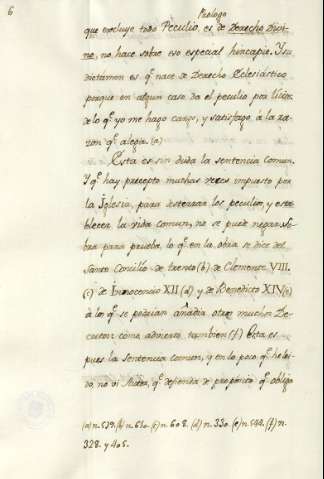 6
Prologo
que excluye todo Peculio, es de Derecho Divi-
no, no hace sobre eso especial hincapie. Y su
dictamen es q.e nace de Derecho Eclesiástico
porque en algun caso da el peculio por licito
de lo q.e yo me hago cargo, y satisfago à la ra-
zon q.e alega. (a)
Esta es sin duda la sentencia comun.
Y q.e hay precepto muchas veces impuesto por
la Iglesia, para desterrar los peculios, y esta-
blecer la vida comun, no se puede negar. So-
bra para prueba, lo q.e en la obra se dice del
Santo Concilio de Trento (b) de Clemente VIII.
(c) de Innocencio XII (d) y de Benedicto XIV (e)
à los q.e se podrian añadir otros muchos De-
cretos como advierto tambien (f) Esta es
pues la sentencia comun, y en lo poco q.e he lei-
do, no vi Autor, q.e defienda de proposito q.e obligo
(a) n. 529. (b) n. 610. (c) n. 608. (d) n. 330. (e) n. 544. (f) n.
328. y 405.